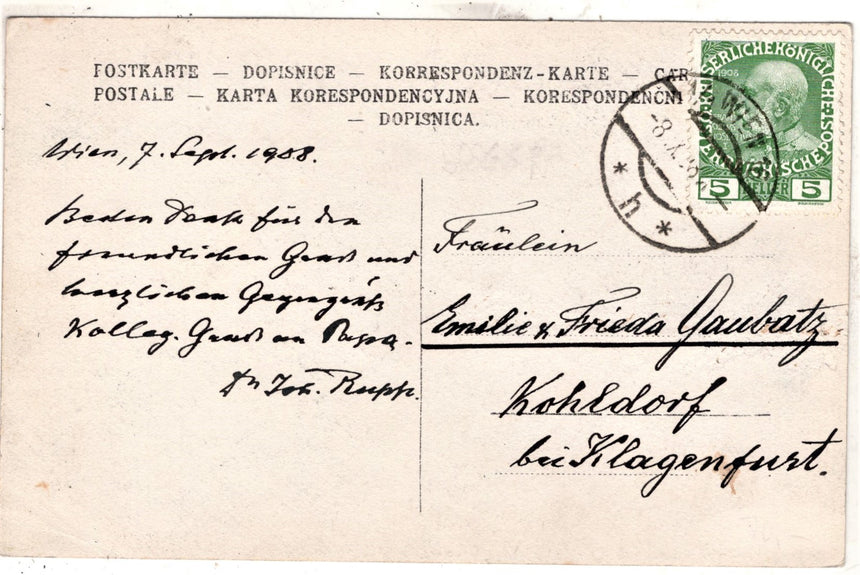 POSTKARTE — DOPISNICE — KORRESPONDENZ-KARTE — CAR
POSTALE — KARTA KORESPONDENCYJNA — KORESPONDENČNI
— DOPISNICA.
KAISERLICHE KÖNIGLICHE
ÖSTERREICHISCHE POST
1908
5 HELLER 5
WIEN
* h *
Wien, 7. Sept. 1908.
Besten Dank für den
freundlichen Gruß und
herzlichen Gegengruß
Kolleg. Gruß an Papa.
Dr Joh. Rupp.
Fräulein
Emilie & Frieda Gaubatz
Kohldorf
bei Klagenfurt.